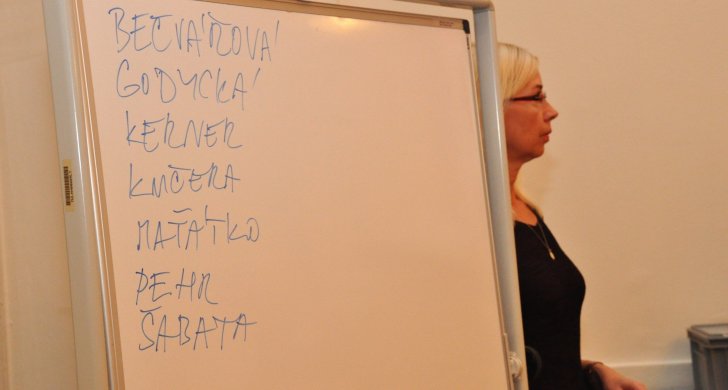 BEČVÁŘOVÁ
GODYCKÁ
KERNER
KUČERA
MAŤÁTKO
PEHR
ŠABATA